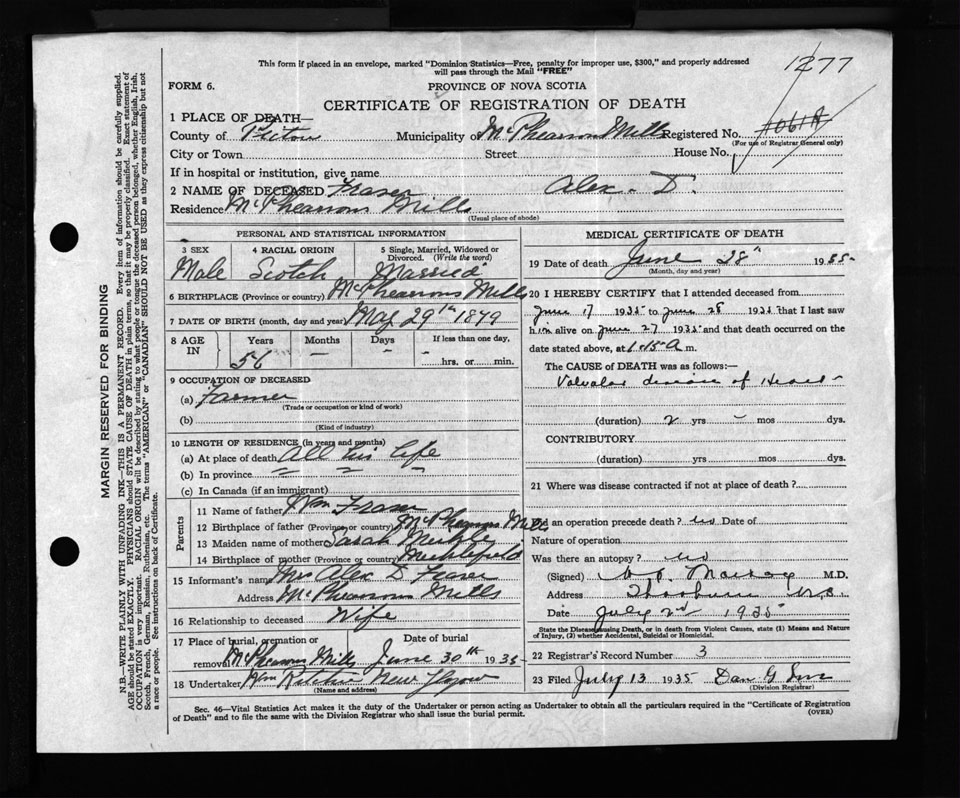 This form if placed in an envelope, marked "Dominion Statistics—Free, penalty for improper use, $300," and properly addressed
will pass through the Mail "FREE"
1277
FORM 6.
PROVINCE OF NOVA SCOTIA
CERTIFICATE OF REGISTRATION OF DEATH
1 PLACE OF DEATH—
County of Pictou Municipality of McPhearsons Mills Registered No.
(For use of Registrar General only)
City or Town Street House No.
If in hospital or institution, give name
2 NAME OF DECEASED Fraser Alex. D.
Residence McPhearsons Mills
(Usual place of abode)
PERSONAL AND STATISTICAL INFORMATION
3 SEX Male
4 RACIAL ORIGIN Scotch
5 Single, Married, Widowed or Divorced. (Write the word) Married
6 BIRTHPLACE (Province or country) McPhearsons Mills
7 DATE OF BIRTH (month, day and year) May 29th 1879
8 AGE IN Years 56 Months — Days — If less than one day, hrs. or min.
9 OCCUPATION OF DECEASED
(a) Farmer
(Trade or occupation or kind of work)
(b)
(Kind of industry)
10 LENGTH OF RESIDENCE (in years and months)
(a) At place of death All his life
(b) In province
(c) In Canada (if an immigrant)
Parents
11 Name of father Wm Fraser
12 Birthplace of father (Province or country) McPhearsons Mills
13 Maiden name of mother Sarah Meikle
14 Birthplace of mother (Province or country) Meiklefield
15 Informant's name Mrs Alex D Fraser
Address McPhearsons Mills
16 Relationship to deceased Wife
17 Place of burial, cremation or removal McPhearsons Mills Date of burial June 30th 1935
18 Undertaker Wm Ritchie New Glasgow
(Name and address)
MEDICAL CERTIFICATE OF DEATH
19 Date of death June 28th 1935
(Month, day and year)
20 I HEREBY CERTIFY that I attended deceased from
June 17 1935 to June 28 1935 that I last saw
him alive on June 27 1935 and that death occurred on the
date stated above, at 1.15 A m.
The CAUSE of DEATH was as follows:—
Valvular disease of Heart
(duration) 2 yrs – mos dys.
CONTRIBUTORY
(duration) yrs mos dys.
21 Where was disease contracted if not at place of death?
Did an operation precede death? no Date of
Nature of operation
Was there an autopsy? no
(Signed) M.D.
Address Thorburn N.S.
Date July 2nd 1935
State the Disease causing Death, or in death from Violent Causes, state (1) Means and Nature
of Injury, (2) whether Accidental, Suicidal or Homicidal.
22 Registrar's Record Number 3
23 Filed July 13 1935 Dan G
(Division Registrar)
Sec. 46—Vital Statistics Act makes it the duty of the Undertaker or person acting as Undertaker to obtain all the particulars required in the "Certificate of Registration
of Death" and to file the same with the Division Registrar who shall issue the burial permit.
(OVER)
MARGIN RESERVED FOR BINDING
N.B.—WRITE PLAINLY WITH UNFADING INK—THIS IS A PERMANENT RECORD. Every item of information should be carefully supplied.
AGE should be stated EXACTLY. PHYSICIANS should STATE CAUSE OF DEATH in plain terms, so that it may be properly classified. Exact statement of
OCCUPATION is very important. RACIAL ORIGIN will be described by stating to what people or tongue the deceased person belonged, whether English, Irish,
Scotch, French, German, Russian, Ruthenian, etc. The terms "AMERICAN" or "CANADIAN" SHOULD NOT BE USED as they express citizenship but not
a race or people. See instructions on back of Certificate.